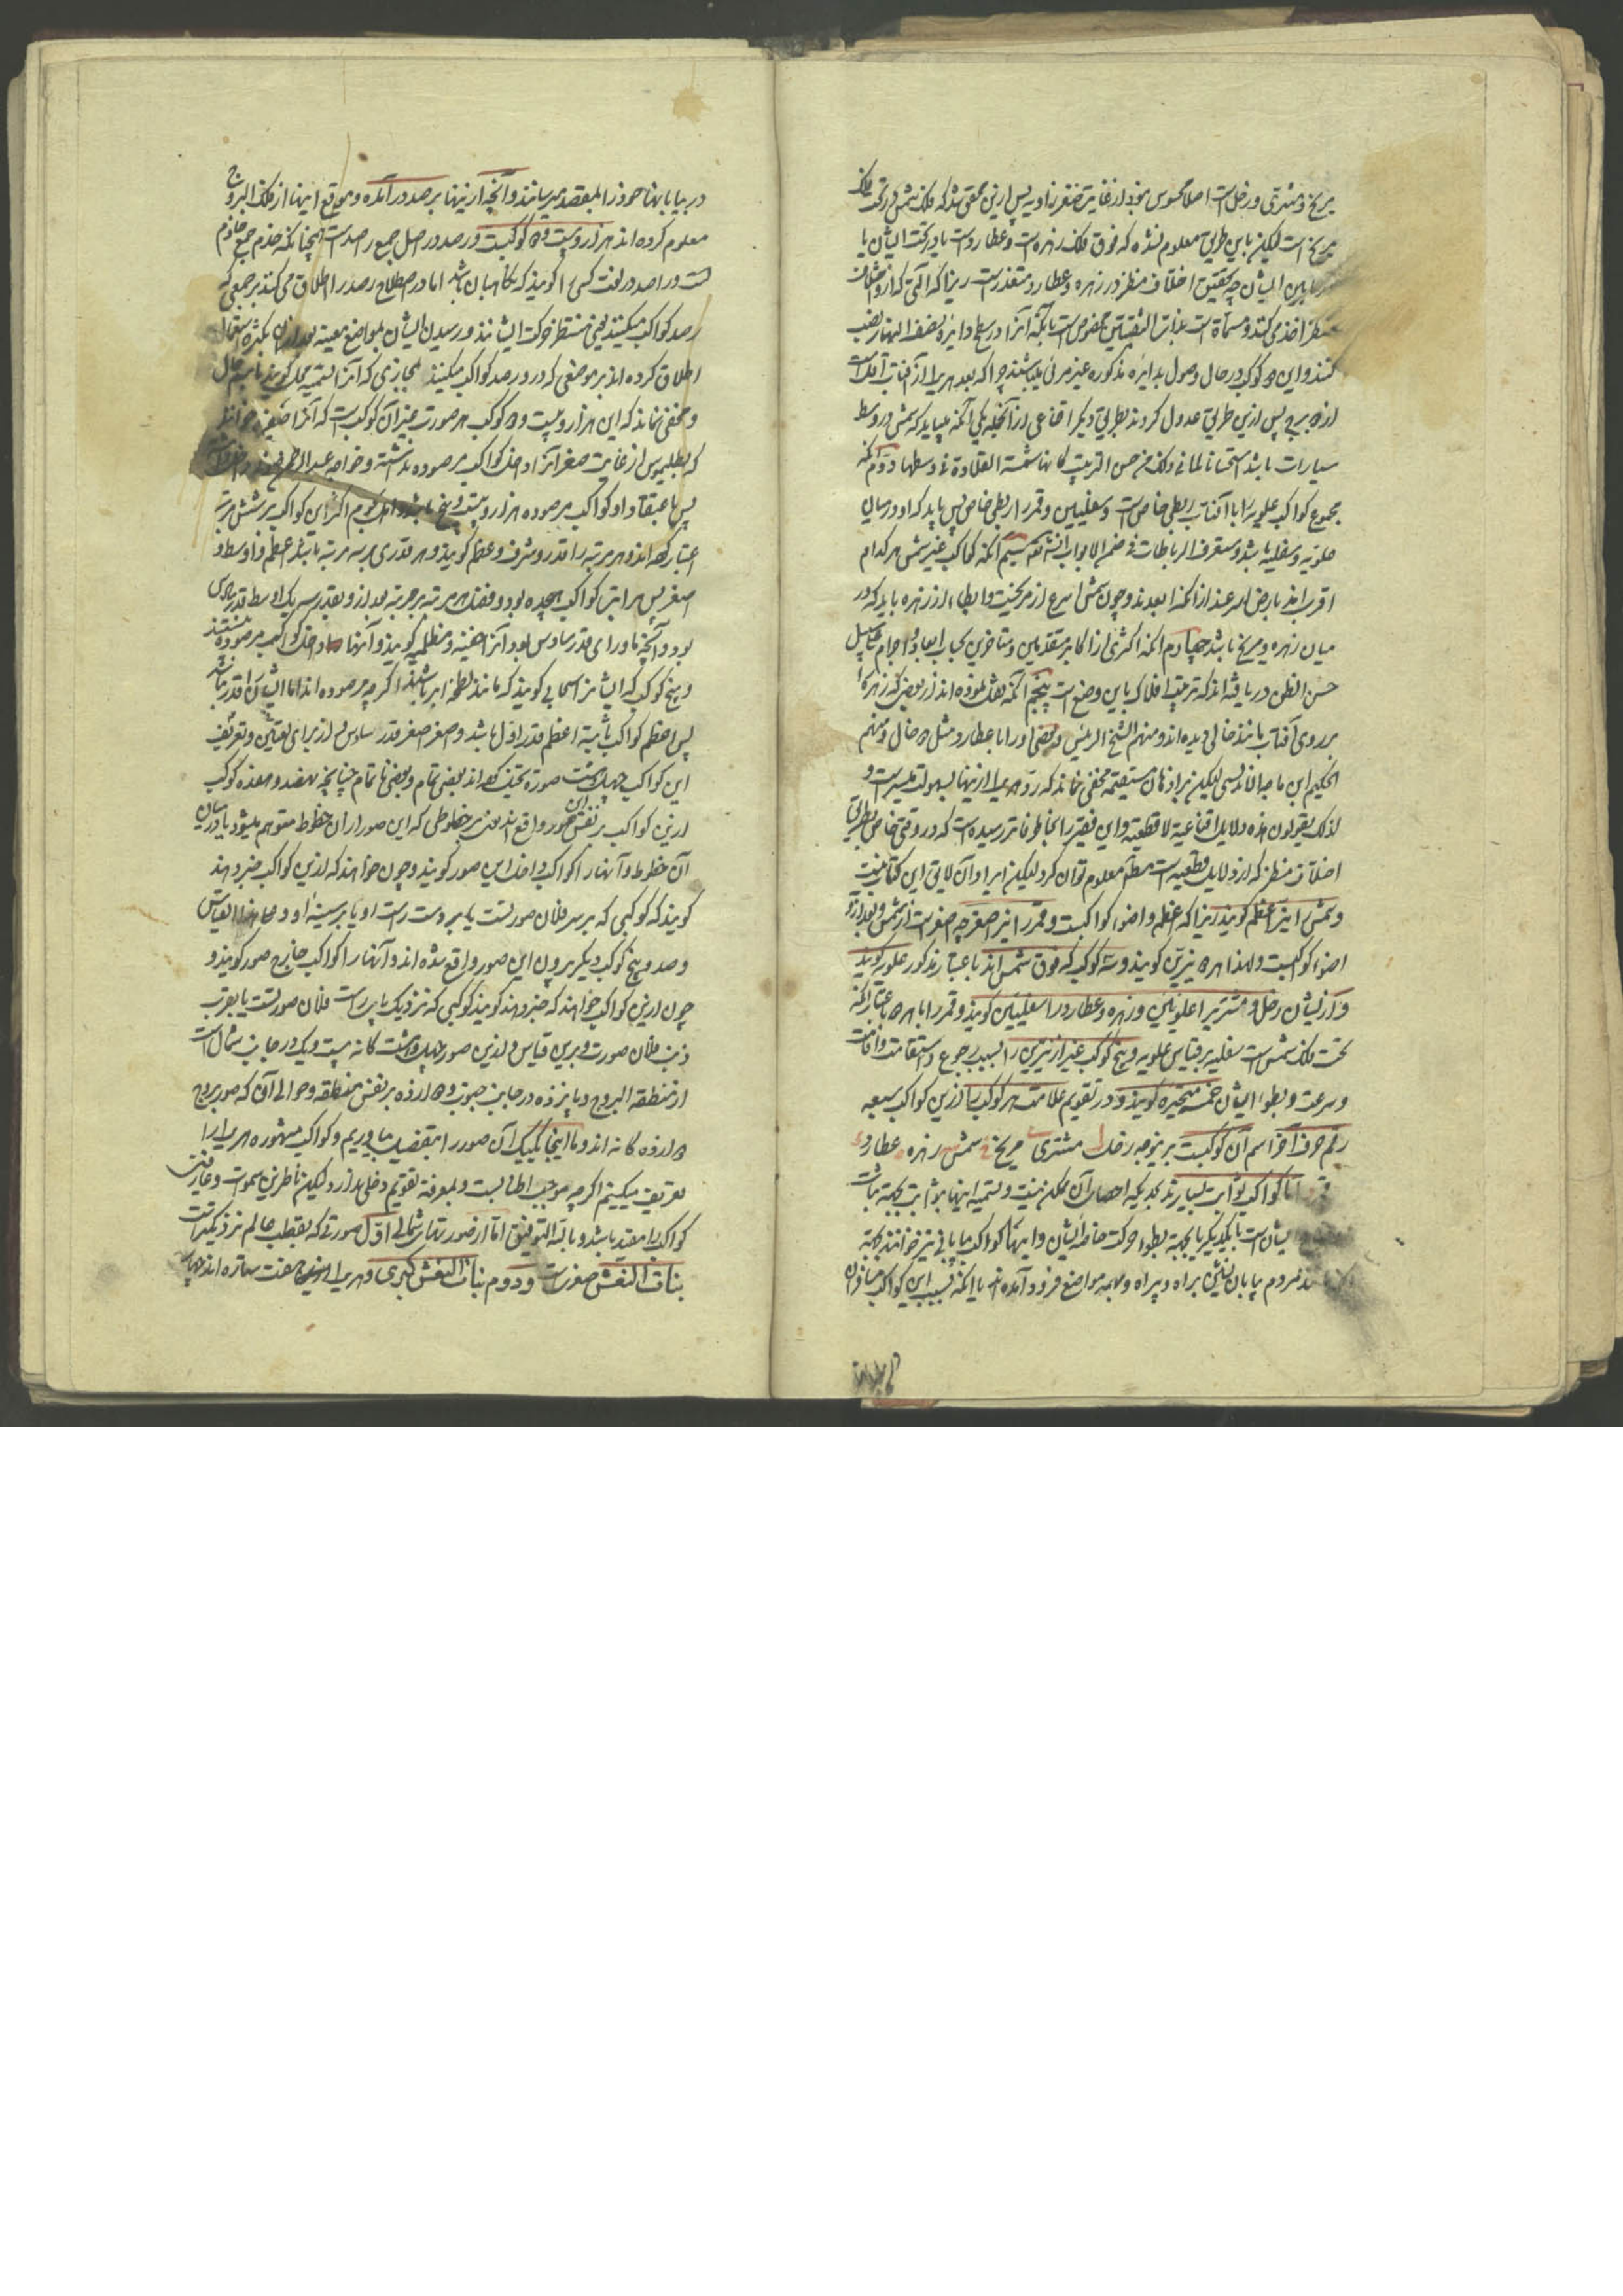 مریخ و مشتری و زحل است اصلا محسوس نبود از غایت صغر زاویه پس ازین محقق شد که فلک شمس در تحت فلک
مریخ است لیکن باین طریق معلوم نشده که فوق فلک زهره است و عطارد است یا در تحت ایشان یا
مابین ایشان چه تحقیق اختلاف منظر در زهره و عطارد متعذرست زیرا که آلتی که ازو اختلاف
منظر اخذ می کنند و مسماة است بذات الثقبتین مخصوص است بآنکه آنرا در سطح دایره نصف النهار نصب
کنند و این دو کوکب در حال وصول بدایره مذکوره غیر مرئی میباشند چرا که بعد هریک از آفتاب
پس ازین طریق عدول کردند بطریق دیگر اقناعی از آنجمله یکی آنکه میباید که شمس در وسط
سیارات باشد استحسانا لما فی ذلک من حسن الترتیب کانها شمسة القلادة فی وسطها دوم آنکه
مجموع کواکب علویه را با آفتاب ربطی خاص است و سفلیین و قمر را ربطی خاص پس باید که او در میان
علویه و سفلیه باشد و ستعرف الرباطات فی ضمن الابواب انشاء الله سیم آنکه کواکب غیر شمس هر کدام
اقرب اند بارض اسرعند از آنکه ابعدند و چون شمس اسرع از مریخست و ابطاء از زهره باید که در
میان زهره و مریخ باشد چهارم آنکه اکثری از اکابر متقدمین و متاخرین بحساب ابعاد و اجرام بر سبیل
حسن الظن دریافته اند که ترتیب افلاک باین وضع است پنجم آنکه نقل نموده اند از بعضی که زهره را
بر روی آفتاب مانند خالی دیده اند و منهم الشیخ الرئیس و بعضی او را با عطارد مثل دو خال و منهم
الحکیم ابن ماجه الاندلسی لیکن بر اذهان مستقیمه مخفی نماند که رد هریک ازینها بسهولت میسرست و
لذلک یقولون هذه دلایل اقناعیة لا قطعیة و این فقیر را بخاطر فاتر رسیده است که در وقتی خاص بطریق
اختلاف منظر که از دلایل قطعیه است معلوم توان کرد لیکن ایراد آن لایق این کتاب نیست
و شمس را نیر اعظم گویند زیرا که اعظم و اضوء کواکبست و قمر را نیر اصغر چه اصغر است از شمس و بعد ازو
اضوء کواکبست و لهذا هر دو را نیرین گویند و سه کوکب که فوق شمس اند باعتبار مذکور علویه گویند
و از ایشان زحل و مشتری را علویین و زهره و عطارد را سفلیین گویند و قمر را با هر دو باعتبار آنکه
تحت فلک شمس است سفلیه بر قیاس علویه و پنج کوکب غیر از نیرین را بسبب رجوع و استقامت و اقامت
و سرعت و بطوء ایشان خمسه متحیره گویند و در تقویم علامت هر کوکب را ازین کواکب سبعه
رقم حرف آخر اسم آن کوکبست برینوجه زحل ل مشتری ی مریخ خ شمس س زهره ه عطارد د
قمر ر اما کواکب ثوابت بسیارند بحدیکه احصار آن ممکن نیست و تسمیه اینها بثوابت بجهة ثبات
میان است با یکدیگر یا بجهة بطوء حرکت خاصه ایشان و اینها را کواکب بیابانی نیز خوانند بجهة
مردم بیابان نشین براه و بیراه و بهمه مواضع فرود آمده اند یا آنکه بسبب این کواکب مسافران
در بیابانها خود را بمقصد میرسانند و آنچه ازینها برصد درآمده و مواقع اینها از فلک البروج
معلوم کرده اند هزار و بیست و دو کوکبست و رصد در اصل جمع راصدست همچنانکه خدم جمع خادم
است و راصد در لغت کسی را گویند که نگاهبان باشد اما در اصطلاح رصد را اطلاق می کنند بر جمعی که
رصد کواکب میکنند یعنی منتظر حرکت ایشانند و رسیدن ایشان بمواضع معینه بعد از آن بکثرة استعمال
اطلاق کرده اند بر موضعی که در و رصد کواکب میکنند مجازی که آنرا تسمیه محل گویند باسم حال
و مخفی نماند که این هزار و بیست و دو کوکب هر صورت غیر آن کوکب است که آنرا ضفیره خوانند
که بطلیموس از غایت صغر آنرا داخل کواکب مرصوده نداشته و خواجه عبدالرحمن صوفی
پس باعتقاد او کواکب مرصوده هزار و بیست و پنج باشد و این کواکب بر شش مرتبه
اعتبار کرده اند و هر مرتبه را قدر و شرف و عظم گویند و هر قدری بر سه مرتبه باشد اعظم و اوسط و
اصغر پس مراتب کواکب هجده بود و فضل هر مرتبه بر مرتبه بعد ازو بقدر سدس یک اوسط قدر سادس
بود و آنچه ماورای قدر سادس بود آنرا خفیه و مظلمه گویند و آنها را داخل کواکب مرصوده ندانند
و پنج کوکب که ایشانرا سحابی گویند که مانند لطخه ابر باشند اگرچه مرصوده اند اما ایشان را قدر نباشد
پس اعظم کواکب ثابته اعظم قدر اول باشد و اصغر اصغر قدر سادس و از برای تعیین و تعریف
این کواکب چهل و هشت صورة تخیل کرده اند بعضی تمام و بعضی ناتمام چنانچه نهصد و هفده کوکب
ازین کواکب بر نفس این صور واقع اند یعنی بر خطوطی که این صور از آن خطوط متوهم میشود یا در میان
آن خطوط و آنها را کواکب داخل این صور گویند و چون خواهند که ازین کواکب خبر دهند
گویند که کوکبی که بر سر فلان صورتست یا بر دست راست او یا بر سینه او و علی هذا القیاس
و صد و پنج کوکب دیگر بیرون این صور واقع شده اند و آنها را کواکب خارج صور گویند و
چون ازین کواکب خواهند که خبر دهند گویند کوکبی که نزدیک پای راست فلان صورتست یا بقرب
ذنب فلان صورت و برین قیاس و ازین صور چهل و هشت گانه بیست و یک در جانب شمال است
از منطقه البروج و پانزده در جانب جنوب و دوازده بر نفس منطقه و حوالی آن که صور بروج
دوازده گانه اند و ما اینجا یکیک آن صور را بتفصیل بیاوریم و کواکب مشهوره هر یک را
تعریف میکنیم اگرچه موجب اطنابست و بمعرفة تقویم دخلی ندارد لیکن ناظرین سموات و عارفین
کواکب را مفید باشد و بالله التوفیق اما از صور شمالی اول صورتی که بقطب عالم نزدیکترست
بنات النعش صغریست و دوم بنات النعش کبری و هر یک ازینها هفت ستاره اند چهار